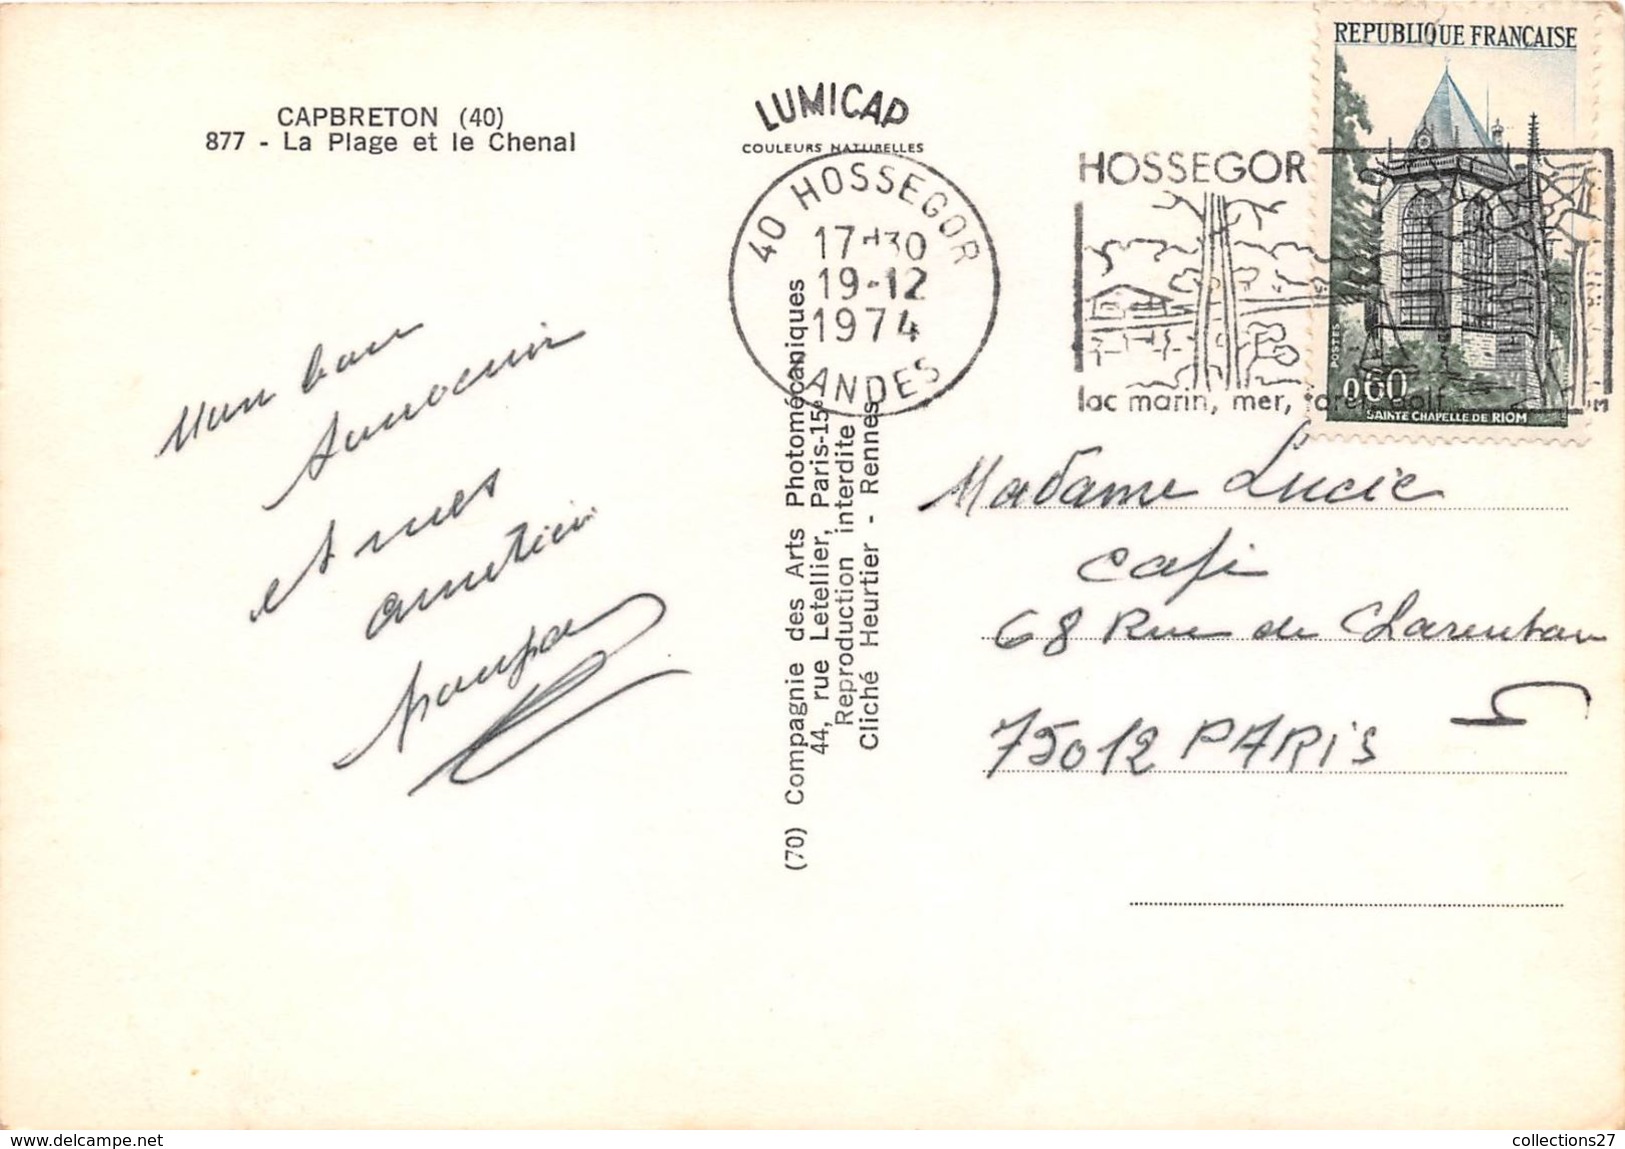 CAPBRETON (40)
877 - La Plage et le Chenal
LUMICAP
COULEURS NATURELLES
40 HOSSEGOR
17-30
19-12
1974
LANDES
HOSSEGOR
lac marin, mer, foret, golf
REPUBLIQUE FRANÇAISE
POSTES
0,60
SAINTE CHAPELLE DE RIOM
Mon bon
souvenir
et mes
amitiés
(70) Compagnie des Arts Photomécaniques
44, rue Letellier, Paris-15e
Reproduction interdite
Cliché Heurtier - Rennes
Madame Lucie
68 Rue de Charenton
75012 PARIS
www.delcampe.net
collections27